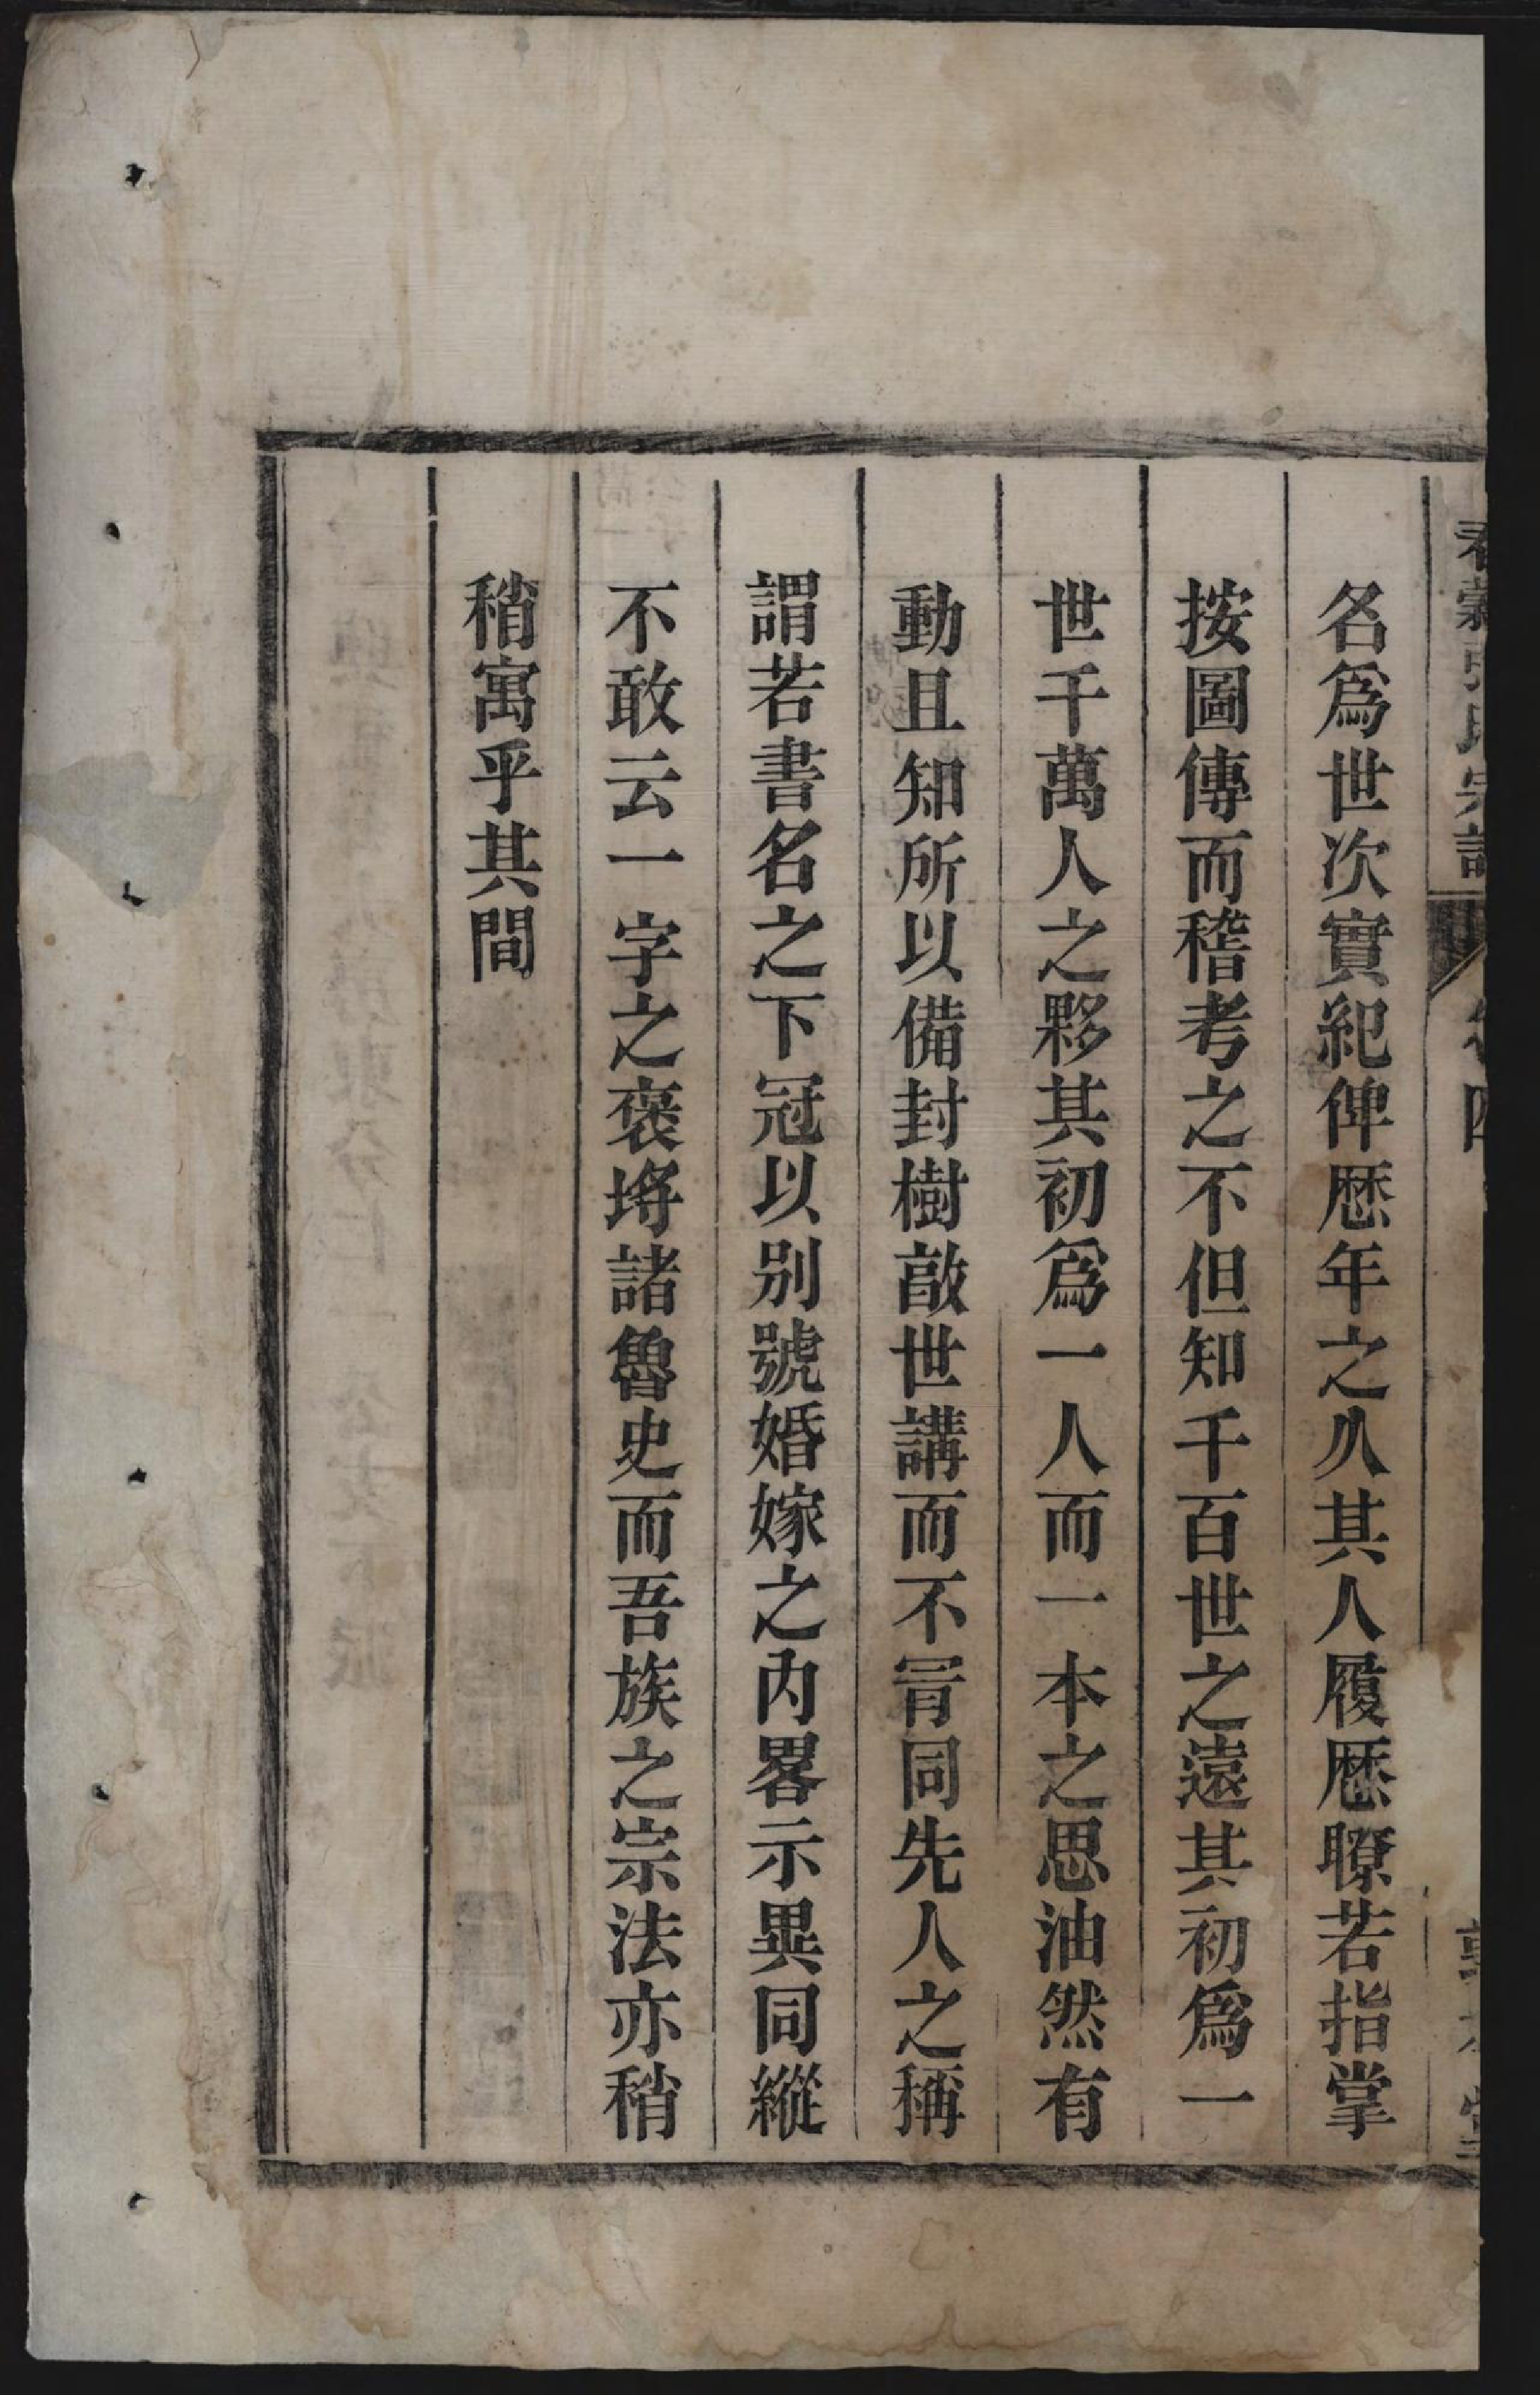 名爲世次實紀俾歴年之乆其人履歴瞭若指掌
按圖傳而稽考之不但知千百世之遠其初爲一
世千萬人之夥其初爲一人而一本之思油然有
動且知所以備封樹敵世講而不冐同先人之稱
謂若書名之下冠以别號婚嫁之内畧示異同縱
不敢云一字之褒將諸魯史而吾族之宗法亦稍
稍寓乎其間